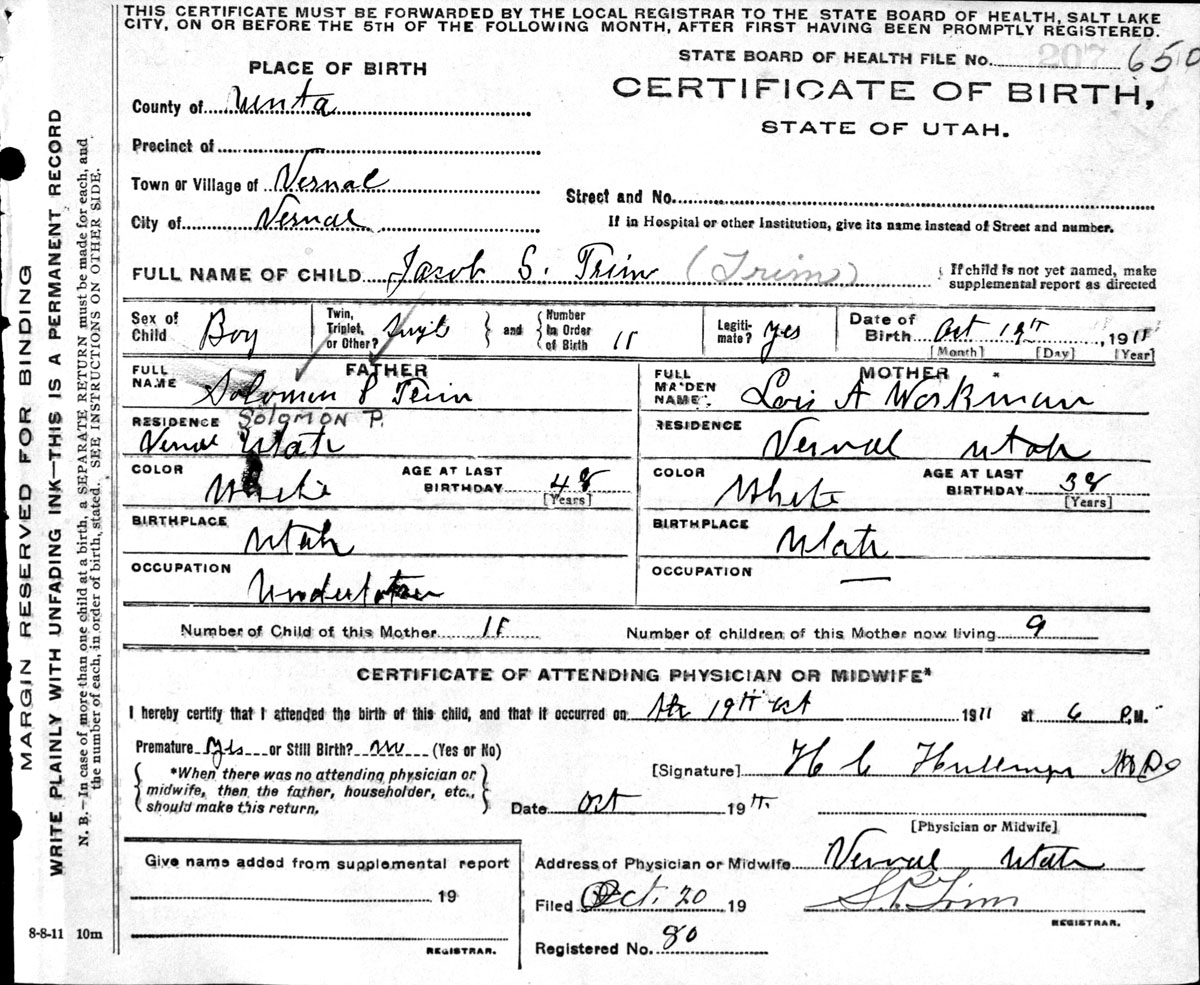 THIS CERTIFICATE MUST BE FORWARDED BY THE LOCAL REGISTRAR TO THE STATE BOARD OF HEALTH, SALT LAKE
CITY, ON OR BEFORE THE 5TH OF THE FOLLOWING MONTH, AFTER FIRST HAVING BEEN PROMPTLY REGISTERED.
STATE BOARD OF HEALTH FILE NO. 207 650
PLACE OF BIRTH
CERTIFICATE OF BIRTH,
STATE OF UTAH.
County of Unta
Precinct of
Town or Village of Vernal
Street and No.
City of Vernal
If in Hospital or other Institution, give its name instead of Street and number.
FULL NAME OF CHILD Jacob S. Trim (Trim)
If child is not yet named, make supplemental report as directed
Sex of Child Boy
Twin, Triplet, or Other? Singl and Number in Order of Birth 11
Legitimate? yes
Date of Birth Oct 19th, 1911
[Month] [Day] [Year]
FATHER
FULL NAME Solomon P Trim
SOLOMON P.
RESIDENCE Vernal Utah
COLOR White
AGE AT LAST BIRTHDAY 48
[Years]
BIRTHPLACE Utah
OCCUPATION Undertaker
MOTHER
FULL MAIDEN NAME Lois A Workman
RESIDENCE Vernal Utah
COLOR White
AGE AT LAST BIRTHDAY 38
[Years]
BIRTHPLACE Utah
OCCUPATION —
Number of Child of this Mother 11
Number of children of this Mother now living 9
CERTIFICATE OF ATTENDING PHYSICIAN OR MIDWIFE*
I hereby certify that I attended the birth of this child, and that it occurred on the 19th Oct 1911 at 6 P.M.
Premature Yes or Still Birth? no (Yes or No)
*When there was no attending physician or
midwife, then the father, householder, etc.,
should make this return.
[Signature] H C
Date Oct 1911.
[Physician or Midwife]
Give name added from supplemental report
19
REGISTRAR.
Address of Physician or Midwife Vernal Utah
Filed Oct. 20 19 S. P. Trim
REGISTRAR.
Registered No. 80
8-8-11 10m
MARGIN RESERVED FOR BINDING
WRITE PLAINLY WITH UNFADING INK—THIS IS A PERMANENT RECORD
N. B.—In case of more than one child at a birth, a SEPARATE RETURN must be made for each, and
the number of each, in order of birth, stated. SEE INSTRUCTIONS ON OTHER SIDE.